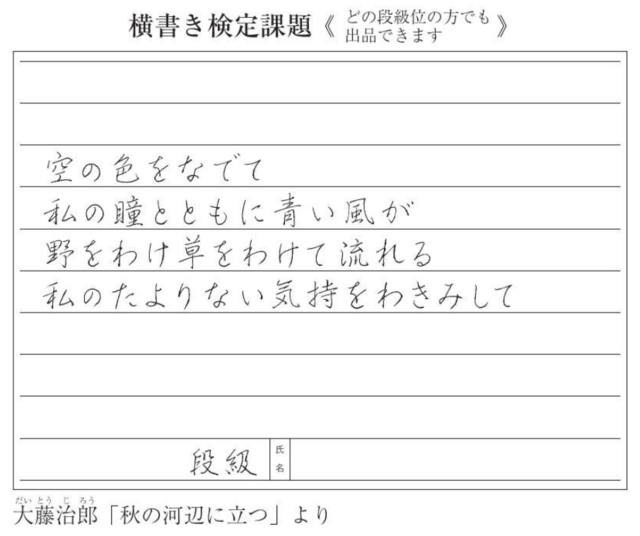 横書き検定課題《どの段級位の方でも出品できます》
空の色をなでて
私の瞳とともに青い風が
野をわけ草をわけて流れる
私のたよりない気持をわきみして
段級 氏名
だいとうじろう
大藤治郎「秋の河辺に立つ」より